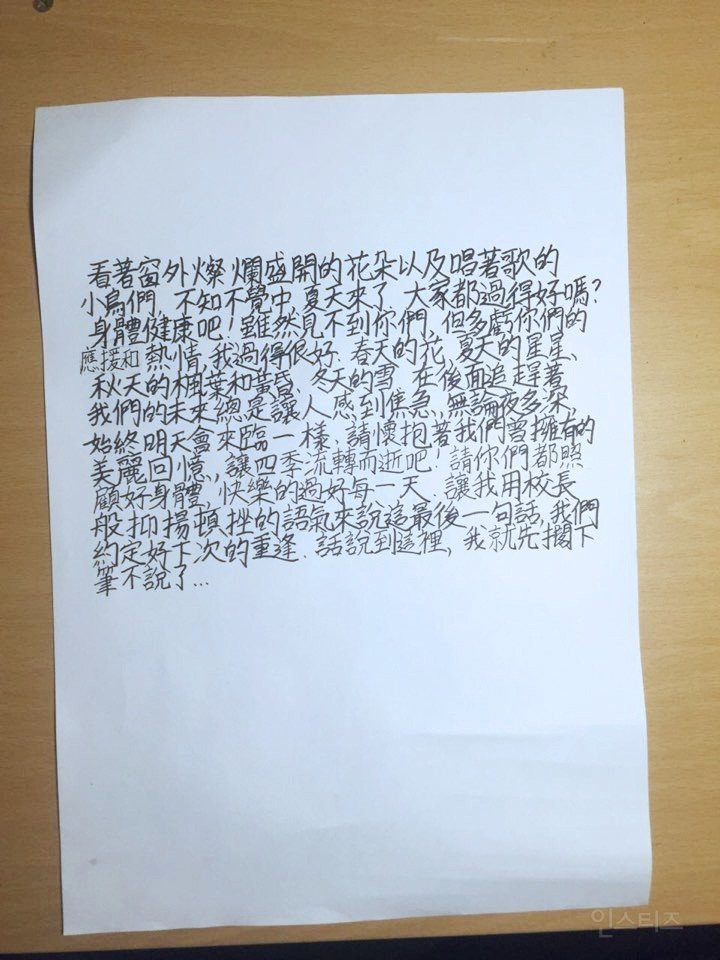 看著窗外燦爛盛開的花朵以及唱著歌的
小鳥們, 不知不覺中, 夏天來了. 大家都過得好嗎?
身體健康吧! 雖然見不到你們, 但多虧你們的
應援和 熱情, 我過得很好. 春天的花、夏天的星星、
秋天的楓葉和黃昏、冬天的雪, 在後面追趕著
我們的未來總是讓人感到焦急, 無論夜多深,
始終明天會來臨一樣, 請懷抱著我們曾擁有的
美麗回憶, 讓四季流轉而逝吧! 請你們都照
顧好身體, 快樂的過好每一天. 讓我用校長
般抑揚頓挫的語氣來說這最後一句話, 我們
約定好下次的重逢. 話說到這裡, 我就先擱下
筆不說了...
인스티즈